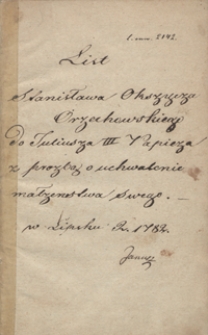 List
Stanisława Okszyca
Orzechowskiego
do Juliusza III Papieża
z prozbą o uchwalenie
małżenstwa swego. —
w Lipsku R. 1782.